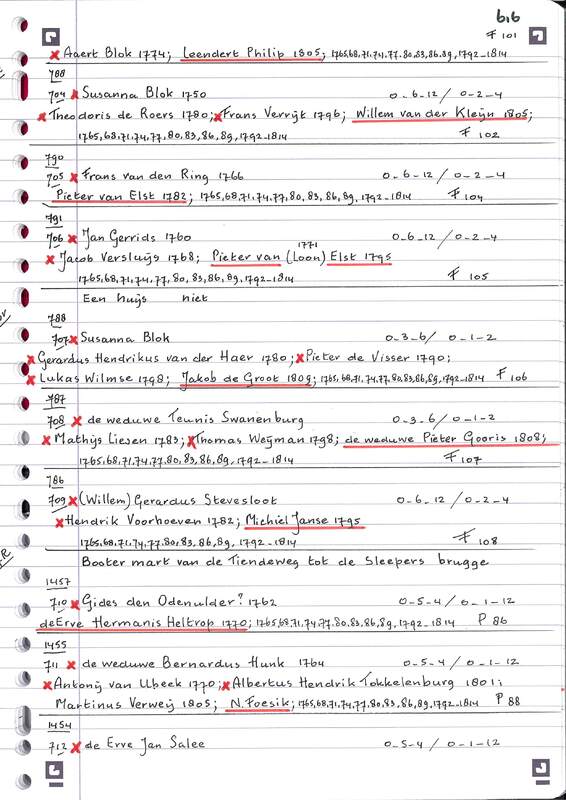 66
F 101
x Aaert Blok 1774; Leendert Philip 1805; 1765,68,71,74,77,80,83,86,89,1792-1814
788
704 x Susanna Blok 1750 0-6-12 / 0-2-4
x Theodoris de Roers 1780; x Frans Verrijt 1796; Willem van der Kleijn 1805;
1765,68,71,74,77,80,83,86,89,1792-1814 F 102
790
705 x Frans van den Ring 1766 0-6-12 / 0-2-4
Pieter van Elst 1782; 1765,68,71,74,77,80,83,86,89,1792-1814 F 104
791
706 x Jan Gerrids 1760 0-6-12 / 0-2-4
1771
x Jacob Versluijs 1768; Pieter van (Loon) Elst 1795
1765,68,71,74,77,80,83,86,89,1792-1814 F 105
Een huijs niet
788
707 x Susanna Blok 0-3-6 / 0-1-2
x Gerardus Hendrikus van der Haer 1780; x Pieter de Visser 1790;
x Lukas Wilmse 1798; Jakob de Groot 1809; 1765,68,71,74,77,80,83,86,89,1792-1814 F 106
787
708 x de weduwe Teunis Swanenburg 0-3-6 / 0-1-2
x Mathijs Liesen 1783; x Thomas Weijman 1798; de weduwe Pieter Gooris 1808;
1765,68,71,74,77,80,83,86,89,1792-1814 F 107
786
709 x (Willem) Gerardus Stevesloot 0-6-12 / 0-2-4
x Hendrik Voorhoeven 1782; Michiel Janse 1795
1765,68,71,74,77,80,83,86,89,1792-1814 F 108
Booter mart van de Tiendeweg tot de Sleepers brugge
1457
710 x Gides den Odenulder? 1762 0-5-4 / 0-1-12
de Erve Hermanis Heltrop 1770; 1765,68,71,74,77,80,83,86,89,1792-1814 P 86
1455
711 x de weduwe Bernardus Hunk 1764 0-5-4 / 0-1-12
x Antonij van Ubeek 1770; x Albertus Hendrik Tokkelenburg 1801;
Martinus Verweij 1805; N. Foesik; 1765,68,71,74,77,80,83,86,89,1792-1814 P 88
1454
712 x de Erve Jan Salee 0-5-4 / 0-1-12